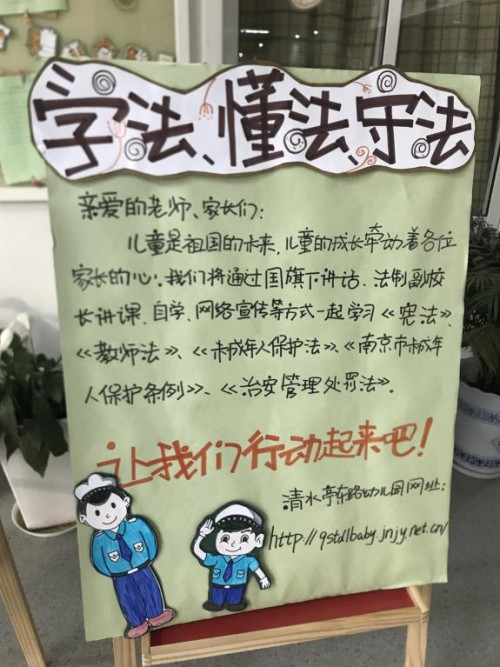 学法、懂法、守法
亲爱的老师、家长们:
儿童是祖国的未来,儿童的成长牵动着各位
家长的心.我们将通过国旗下讲话、法制副校
长讲课、自学、网络宣传等方式一起学习《宪法》、
《教师法》、《未成年人保护法》、《南京市未成年
人保护条例》、《治安管理处罚法》.
让我们行动起来吧!
清水亭东路幼儿园网址:
http://qstdlbaby.jnjy.net.cn/